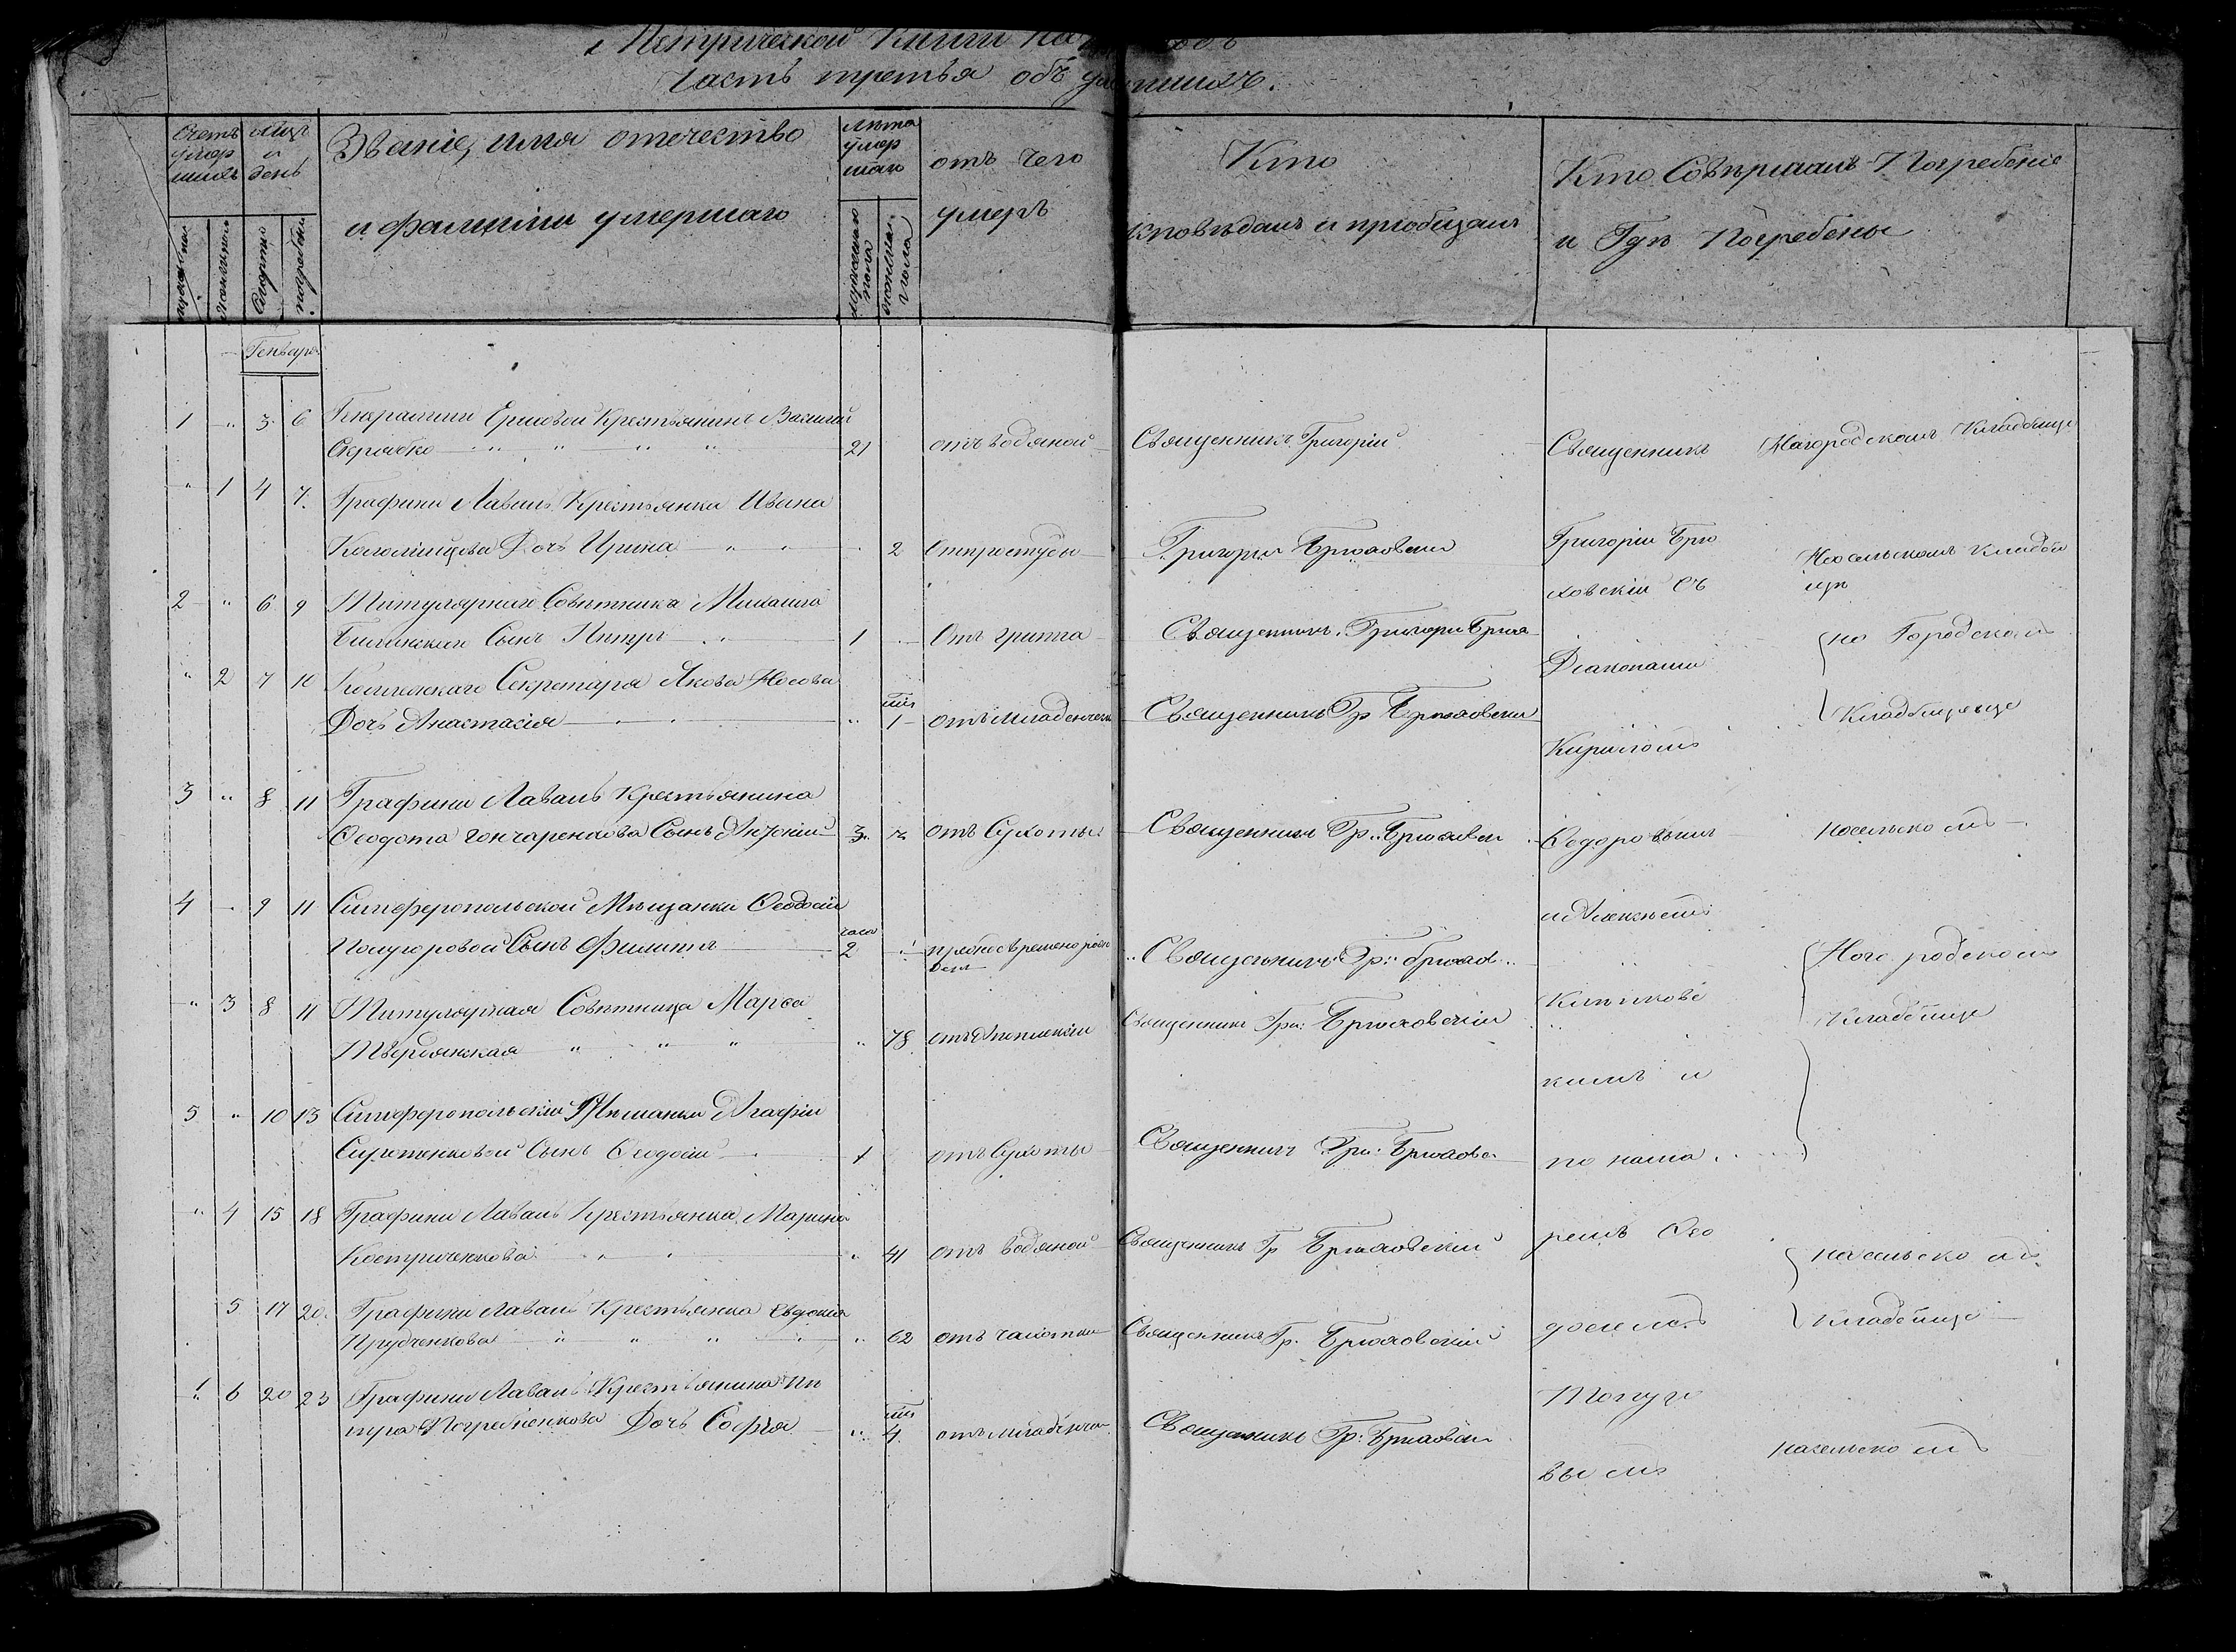 Метрической Книги
Часть третья объ умершихъ.
Счетъ умер шихъ
Мцъ и день
Званіе, имя отечество
и фамиліи умершаго
лѣта умер шаго
отъ чего
умеръ
Кто
исповѣдалъ и пріобщалъ
Кто Совершалъ Погребеніе
и Гдѣ Погребены
мужеска
женска
Смерти
погребенія
мужеска пола
женска пола
Генваря
1 " 3 6 Генеральши Ершовой Крестьянинъ Василій
Скрябко 21 отъ водяной Священникъ Григорій Священникъ Нагородскомъ Кладбище
" 1 4 7 Графини Лаваль Крестьянка Ивана
Коломійцева Дочь Ирина " 2 Отпростуды Григорій Брюховски Григорій Брю
Насельскомъ кладби
щѣ
ховскій Съ
2 " 6 9 Титулярнаго Совѣтника Михаила
Сынъ Петръ 1 Отъ гриппа Священникъ Григори Брюх на Городскомъ
Діакономъ
" 2 7 10 Колежскаго Секретаря Якова Носова
Дочь Анастасія " 1 отъ младенческ Священникъ Гр Брюховски Кладбищеще
Кириломъ
3 " 8 11 Графини Лаваль Крестьянина
Ѳеодота Гончаренкова Сынъ Антоній 3 " отъ Сухоты Священникъ Гр. Брюховск Ѳедоровымъ насельскомъ
4 9 11 Симферопольской Мѣщанки Ѳеодосіи
часа
Полуяровой Сынъ Филиппъ 2 преждевременорож
дения
Священникъ Гр: брюхов Нагородскомъ
" 3 8 11 Титулярная Совѣтница Марѳа
Твердянская " " " " 78 отъ Апоплексіи Священникъ Гри: Брюховскій Кладбище
кимъ и
5 " 10 13 Симферопольскій Мѣщанки Агафіи
Сиротенковой Сынъ Ѳеодосій 1 отъ Сухоты Священникъ Гри: Брюховс понама
" 4 15 18 Графини Лаваль Крестьянка Марина
Костриченкова " 41 отъ водяной Священникъ Гр Брюховскій ремъ Ѳео насельскомъ
5 17 20 Графини Лаваль Крестьянка Евдокія
Прудченкова " " " " 62 отъ чахотки Священникъ Гр. Брюховскій досіемъ Кладбище
" 6 20 23 Графини Лаваль Крестьянина Пе
тра Погребненкова Дочь Софія " 4 отъ младенческ Священникъ Гр: Брюховск насельскомъ
вымъ